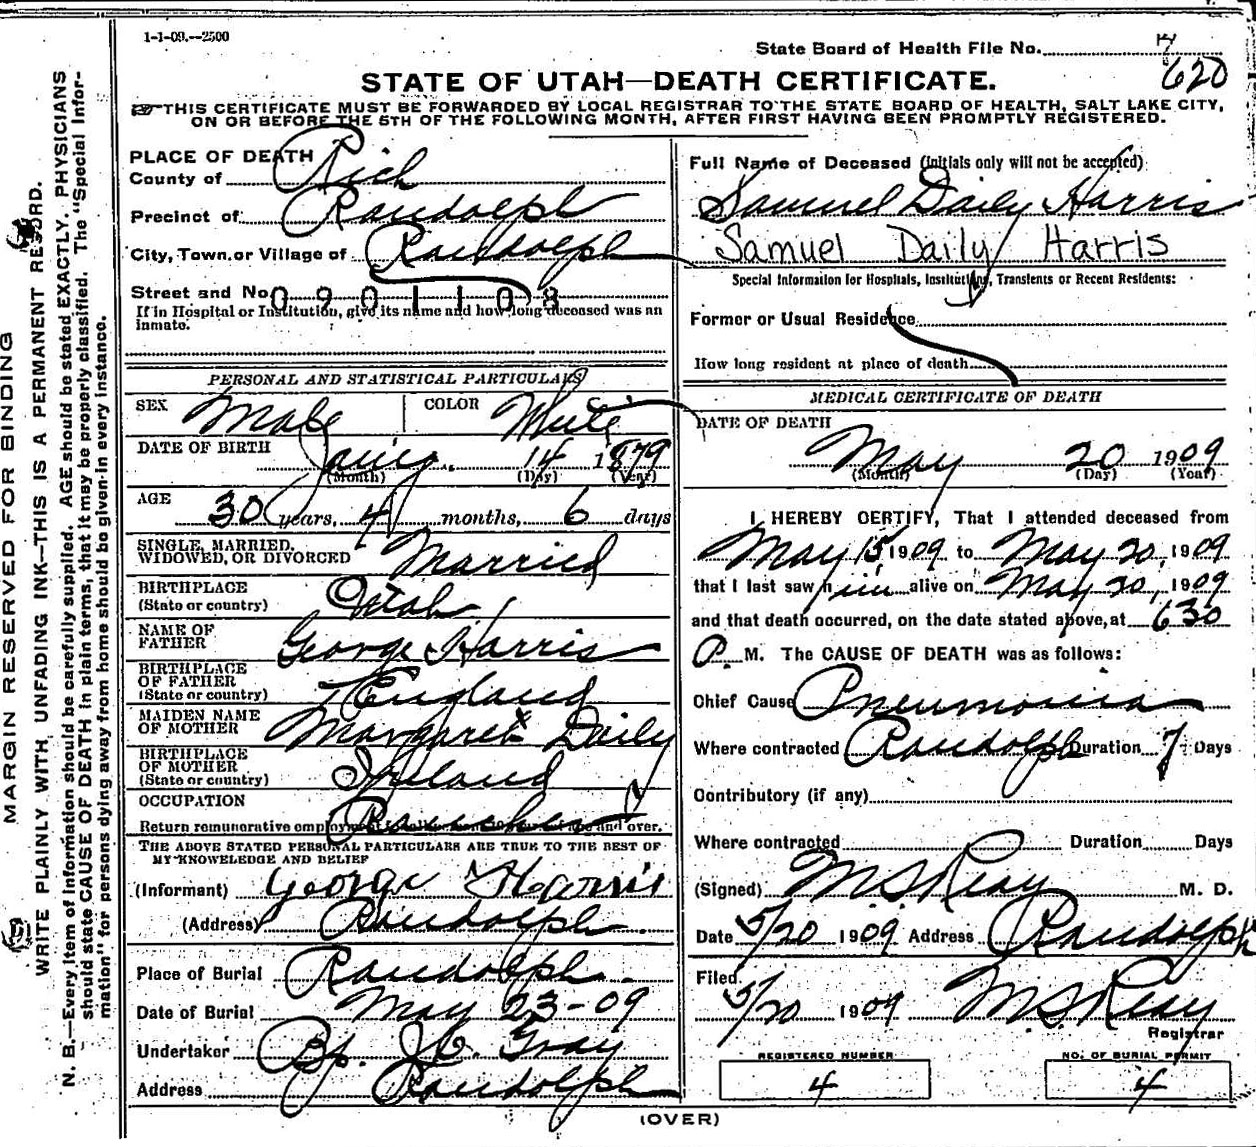 1-1-09.--2500
State Board of Health File No. 620
STATE OF UTAH—DEATH CERTIFICATE.
THIS CERTIFICATE MUST BE FORWARDED BY LOCAL REGISTRAR TO THE STATE BOARD OF HEALTH, SALT LAKE CITY,
ON OR BEFORE THE 5TH OF THE FOLLOWING MONTH, AFTER FIRST HAVING BEEN PROMPTLY REGISTERED.
MARGIN RESERVED FOR BINDING
WRITE PLAINLY WITH UNFADING INK—THIS IS A PERMANENT RECORD.
N. B.—Every item of information should be carefully supplied. AGE should be stated EXACTLY. PHYSICIANS
should state CAUSE OF DEATH in plain terms, that it may be properly classified. The "Special Infor-
mation" for persons dying away from home should be given in every instance.
PLACE OF DEATH
County of Rich
Precinct of Randolph
City, Town or Village of Randolph
Street and No. 0901108
If in Hospital or Institution, give its name and how long deceased was an
inmate.
PERSONAL AND STATISTICAL PARTICULARS
SEX Male COLOR White
DATE OF BIRTH
14 1879
(Month) (Day) (Year)
AGE
30 years, 4 months, 6 days
SINGLE, MARRIED,
WIDOWED, OR DIVORCED Married
BIRTHPLACE
(State or country) Utah
NAME OF
FATHER George Harris
BIRTHPLACE
OF FATHER
(State or country) England
MAIDEN NAME
OF MOTHER Margaret Daily
BIRTHPLACE
OF MOTHER
(State or country) Ireland
OCCUPATION Rancher
Return remunerative employment and over.
THE ABOVE STATED PERSONAL PARTICULARS ARE TRUE TO THE BEST OF
MY KNOWELEDGE AND BELIEF
(Informant) George Harris
(Address) Randolph
Place of Burial Randolph
Date of Burial May 23-09
Undertaker Bp. J.C. Gray
Address Randolph
Full Name of Deceased (Initials only will not be accepted)
Samuel Daily Harris
Samuel Daily Harris
Special Information for Hospitals, Institutions, Transients or Recent Residents:
Former or Usual Residence
How long resident at place of death
MEDICAL CERTIFICATE OF DEATH
DATE OF DEATH
May 20 1909
(Month) (Day) (Year)
I HEREBY CERTIFY, That I attended deceased from
May 15 1909 to May 20, 1909
that I last saw him alive on May 20, 1909
and that death occurred, on the date stated above, at 630
P. M. The CAUSE OF DEATH was as follows:
Chief Cause Pneumonia
Where contracted Randolph Duration 7 Days
Contributory (if any)
Where contracted Duration Days
(Signed) M S Reay M. D.
Date 5/20 1909 Address Randolph
Filed
5/20 1909 M. S. Reay
Registrar
REGISTERED NUMBER
4
NO. OF BURIAL PERMIT
4
(OVER)